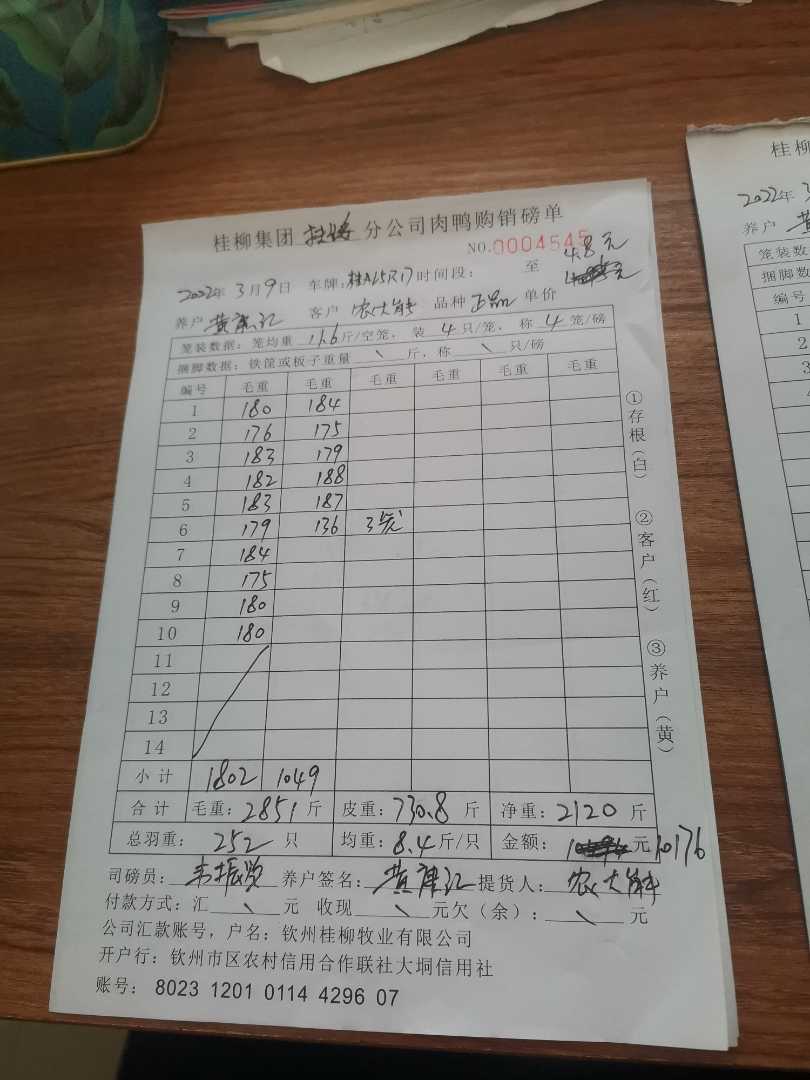 桂柳集团 分公司肉鸭购销磅单
NO.0004545
2022年 3月9日 车牌: 桂A25R17 时间段: 至 4.8元
养户 黄广江 客户 农大 品种 正品 单价 元
笼装数据: 笼均重 11.6 斤/空笼, 装 4 只/笼, 称 4 笼/磅
捆脚数据: 铁筐或板子重量 \ 斤, 称 \ 只/磅
编号 毛重 毛重 毛重 毛重 毛重 毛重
1 180 184
2 176 175
3 183 179
4 182 188
5 183 187
6 179 136 3笼
7 184
8 175
9 180
10 180
11
12
13
14
小计 1802 1049
合计 毛重: 2851 斤 皮重: 730.8 斤 净重: 2120 斤
总羽重: 252 只 均重: 8.4 斤/只 金额: 元 10176
司磅员: 韦振 养户签名: 黄广江 提货人: 农大
付款方式: 汇 \ 元 收现 \ 元欠(余): \ 元
公司汇款账号, 户名: 钦州桂柳牧业有限公司
开户行: 钦州市区农村信用合作联社大垌信用社
账号: 8023 1201 0114 4296 07
①存根(白) ②客户(红) ③养户(黄)
桂柳
2022年 3
养户 黄
笼装数
捆脚数
编号
1
2
3